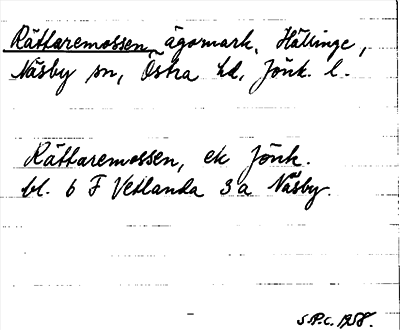 Rättaremossen, ägomark, Hällinge,
Näsby sn, Östra hd, Jönk. l.
Rättaremossen, ek Jönk.
bl. 6 F Vetlanda 3a Näsby.
S.P.C. 1958.